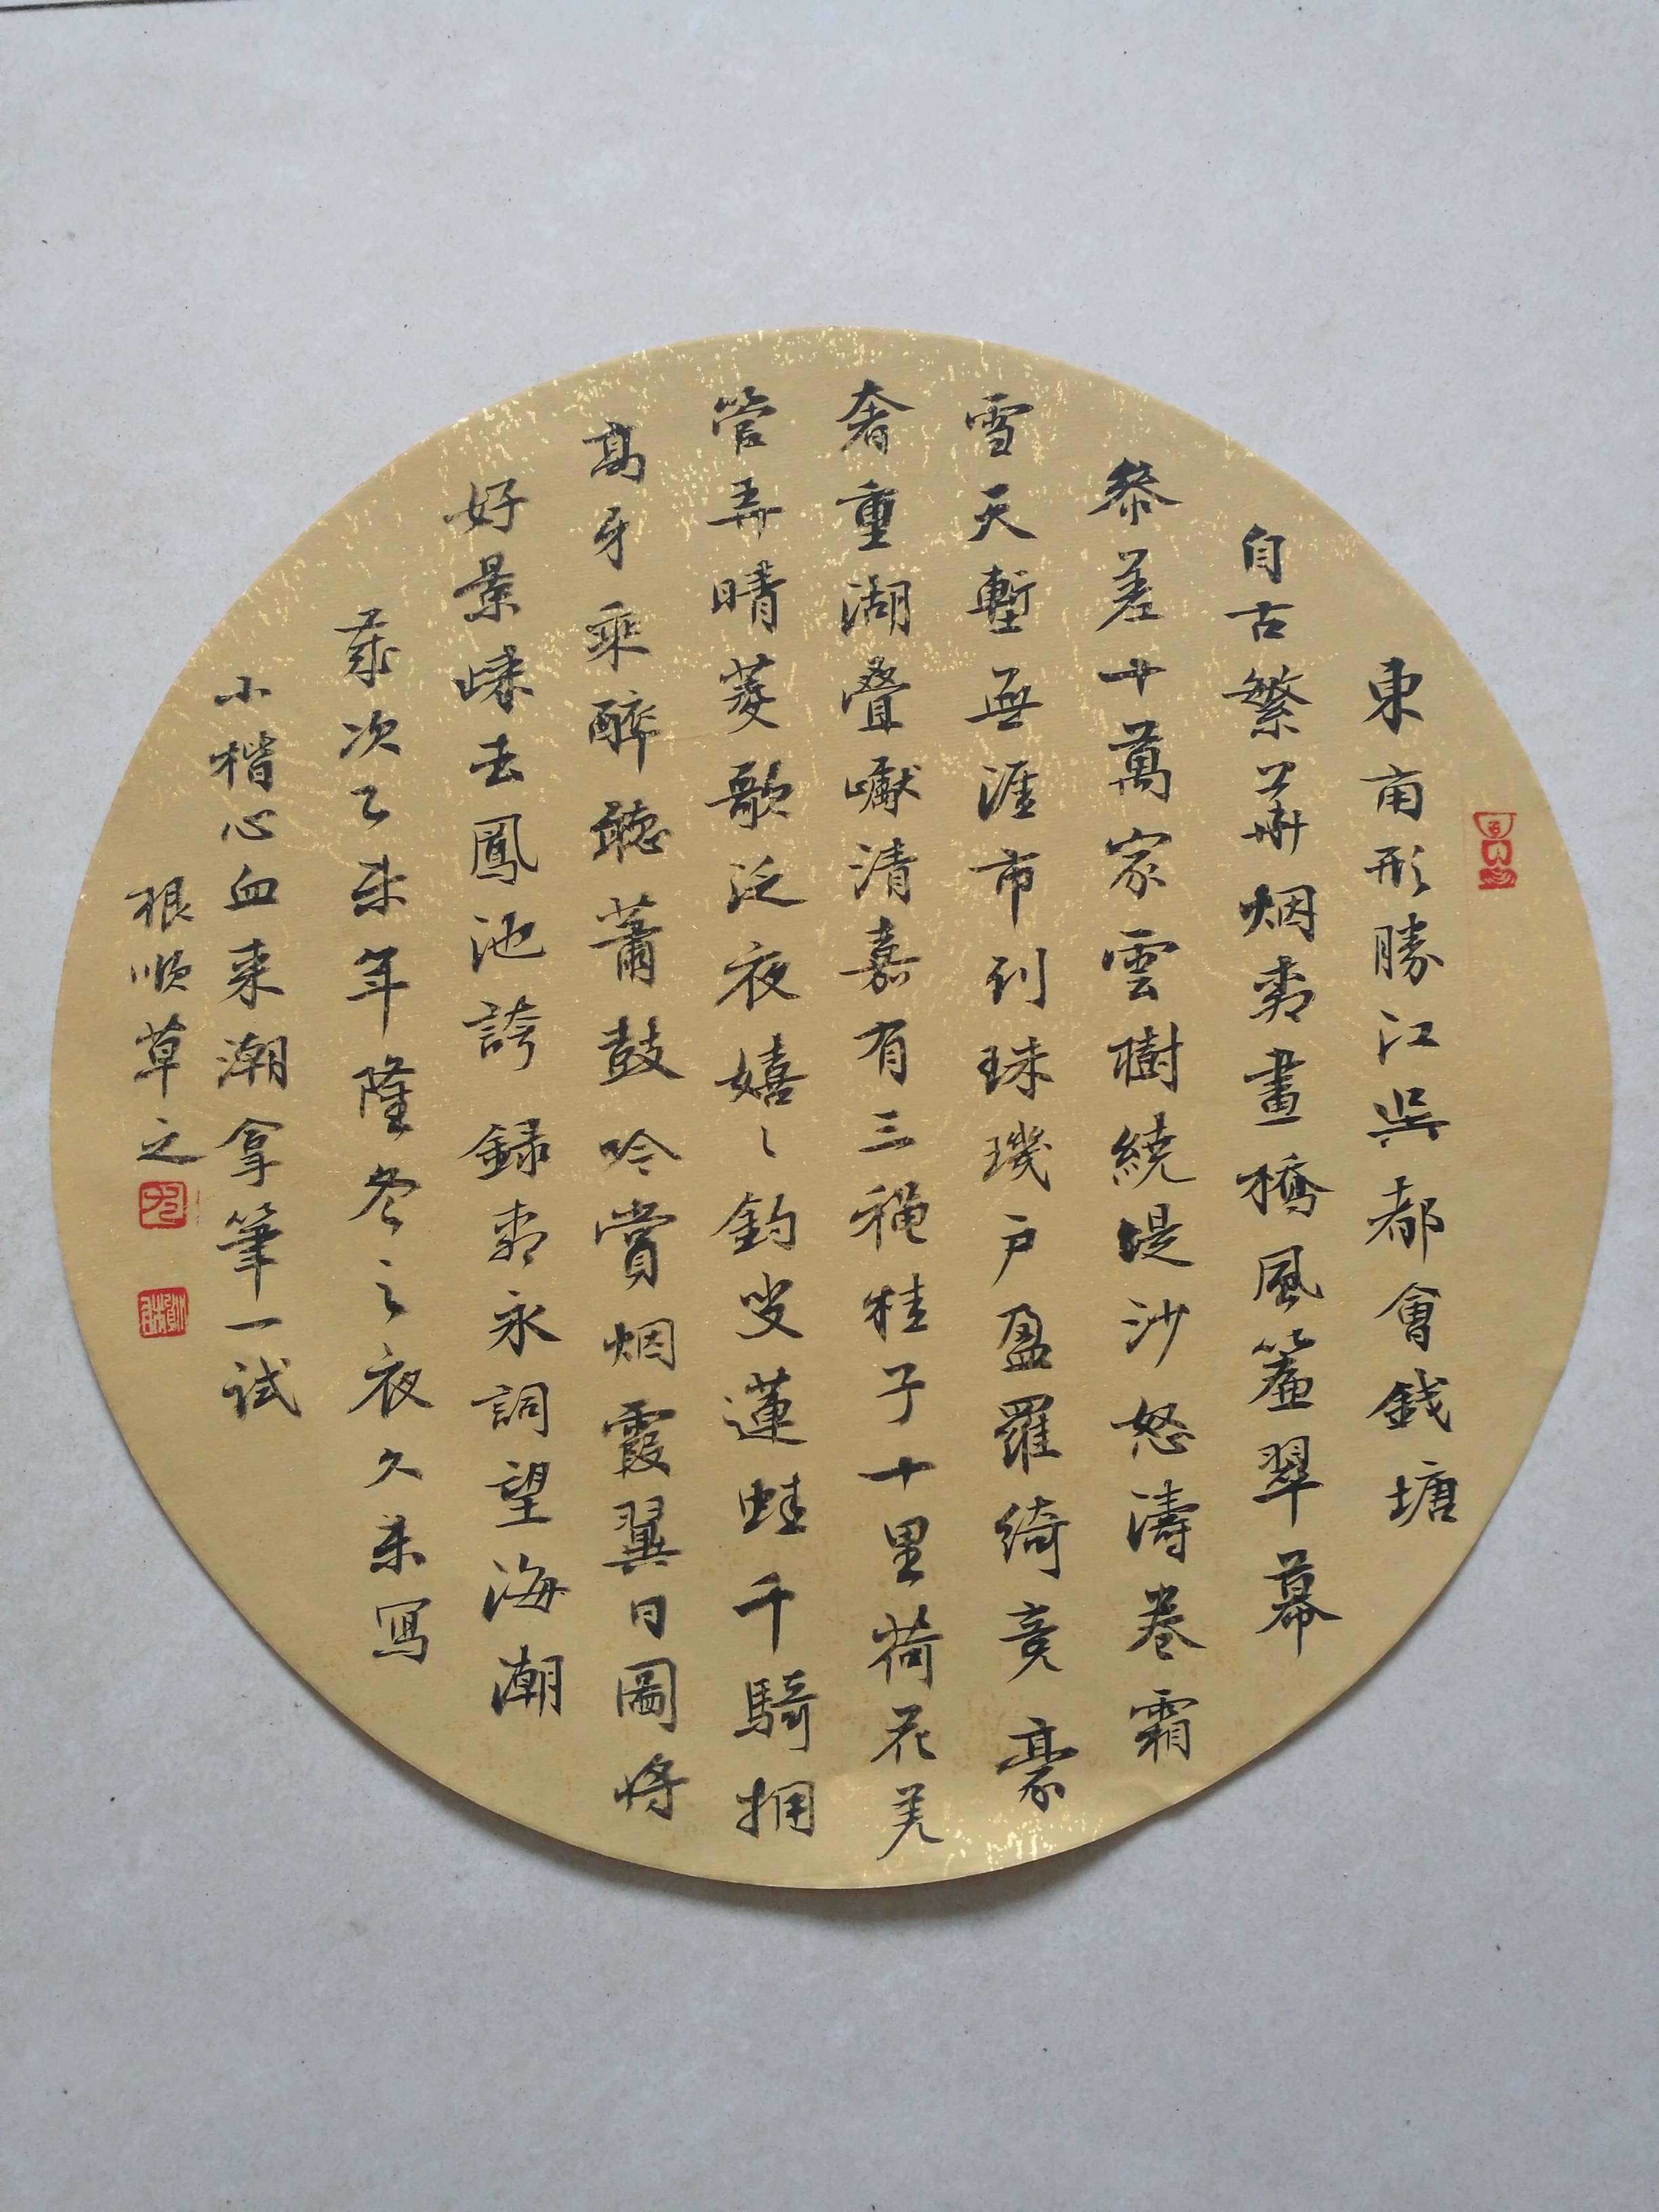 東南形勝江吳都會錢塘
自古繁華烟柳畫橋風簾翠幕
參差十萬家雲樹繞堤沙怒濤卷霜
雪天塹無涯市列珠璣戶盈羅綺竞豪
奢重湖疊巘清嘉有三秋桂子十里荷花羌
管弄晴菱歌泛夜嬉〻釣叟蓮娃千騎拥
高牙乘醉聽蕭鼓吟賞烟霞翼日圖将
好景歸去鳳池誇 録柳永詞望海潮
歲次乙未年隆冬之夜久未寫
小楷心血来潮拿筆一试
根順草之